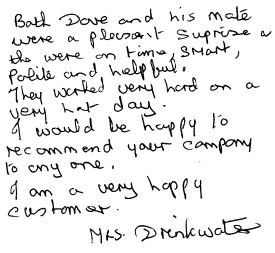 Both Dave and his mate
were a pleasent Suprise a
the were on time, SMart,
Polite and, helpful.
They worked very hard on a
very hat day.
I would be happy to
recommend your company
to any one.
I am a very happy
customer.
Mrs. Drinkwater